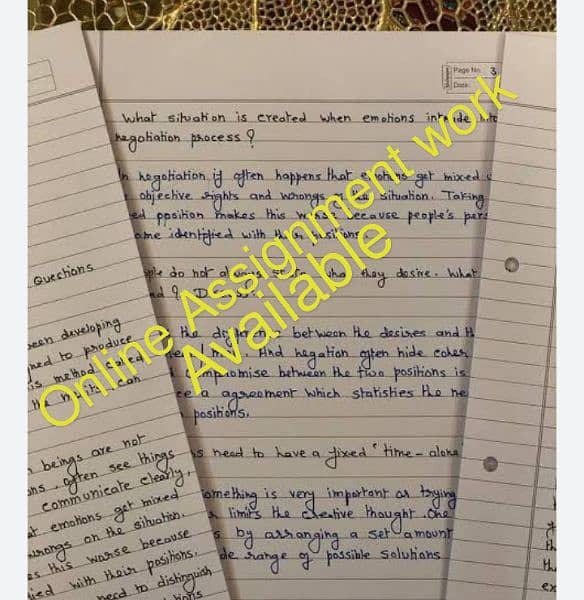 Page No. 3
Date:
What situation is created when emotions
negotiation process ?
negotiation if often happens that emotions get mixed
objective rights and wrongs of the situation. Taking
ed pposition makes this worse because people's pers
ome identified with their positions
ple do not always state what they desire. What
the difference between the desires and th
And negation often hide
compromise between the two positions is
ce a agreement which statisties the ne
positions.
s need to have a fixed " time - alone
omething is very important as trying
limits the creative thought. One
s by arranging a set amount
de range of possible solutions
Quections
een developing
ned to produce
is method called
the results can
n beings are not
ons, often see things
communicate clearly,
at emotions get mixed
wrongs on the situation.
es this worse because
ied with their positions.
need to distinguish
tions
th
th
ex
Online Assignment work
Available